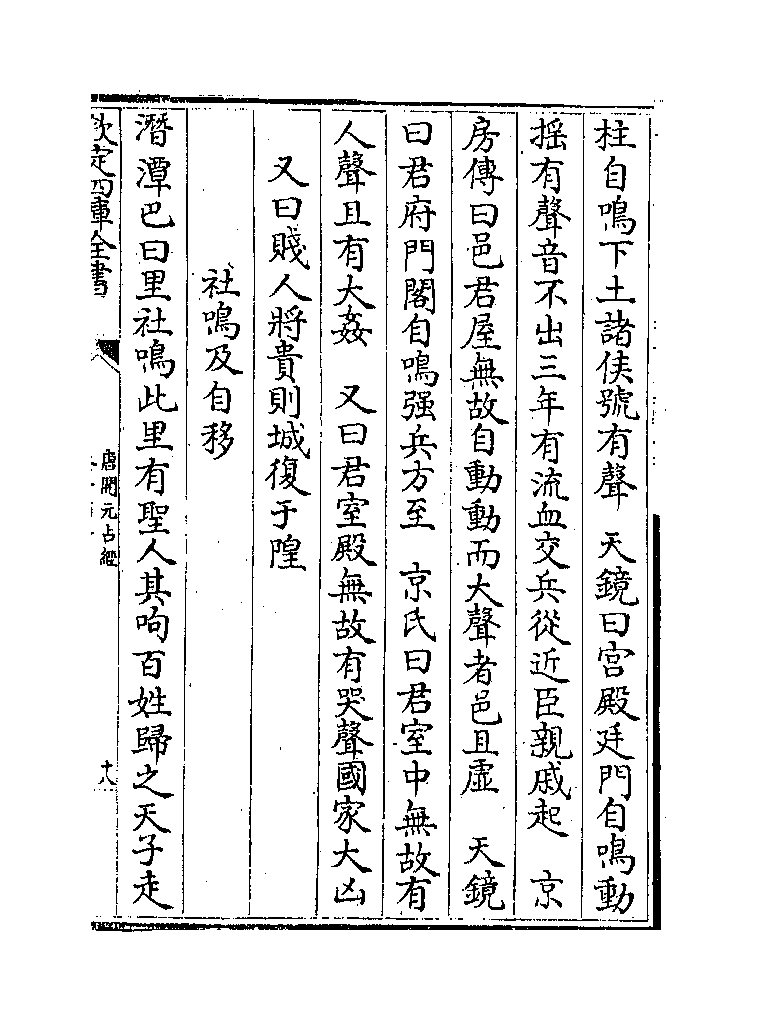 柱自鳴下土諸侯號有聲　天鏡曰宫殿廷門自鳴動
揺有聲音不出三年有流血交兵從近臣親戚起　京
房傳曰邑君屋無故自動動而大聲者邑且虛　天鏡
曰君府門閣自鳴强兵方至　京氏曰君室中無故有
人聲且有大姦　又曰君室殿無故有哭聲國家大凶
又曰賤人將貴則城復于隍
社鳴及自移
潛潭巴曰里社鳴此里有聖人其呴百姓歸之天子走
欽定四庫全書
唐開元占經
十八